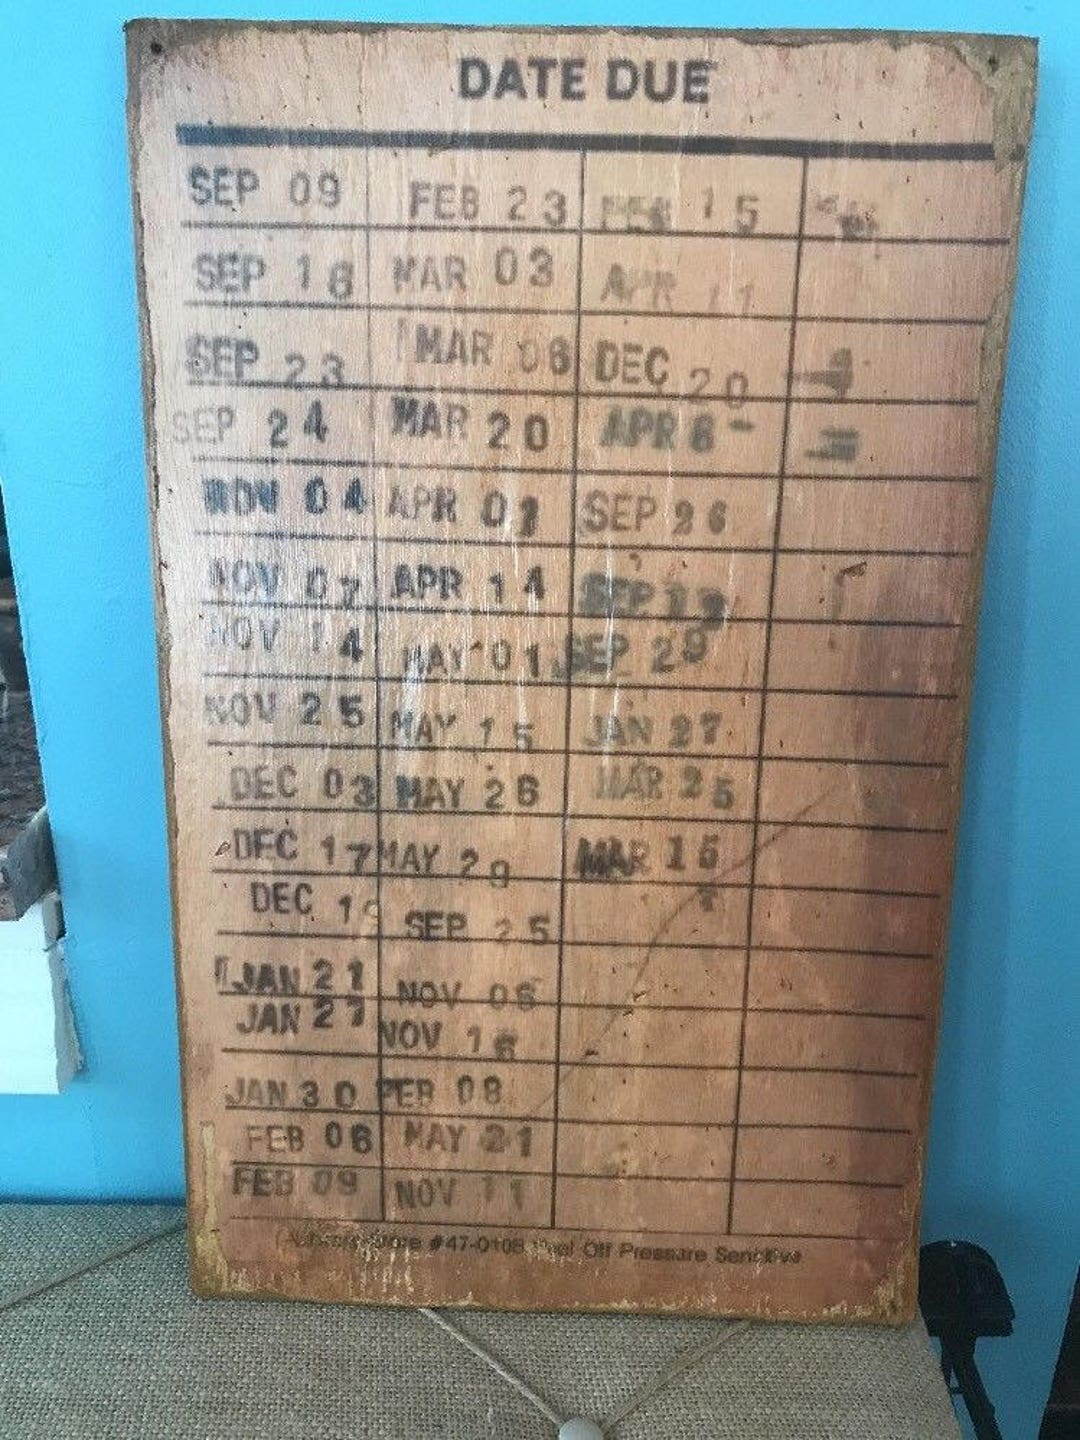 DATE DUE
SEP 09 FEB 23 15
SEP 18 MAR 03 APR 11
SEP 23 MAR 06 DEC 20
SEP 24 MAR 20 APR 6-
NOV 04 APR 01 SEP 26
NOV 07 APR 14 SEP
NOV 14 MAY 01 SEP 29
NOV 25 MAY 15 JAN 27
DEC 03 MAY 26 MAR 25
DEC 17 MAY 29 MAR 15
DEC SEP 25
JAN 21 NOV 06
JAN 27 NOV 16
JAN 30 FEB 08
FEB 06 MAY 21
FEB 09 NOV 11
#47-0108 Peel Off Pressure Sensitive